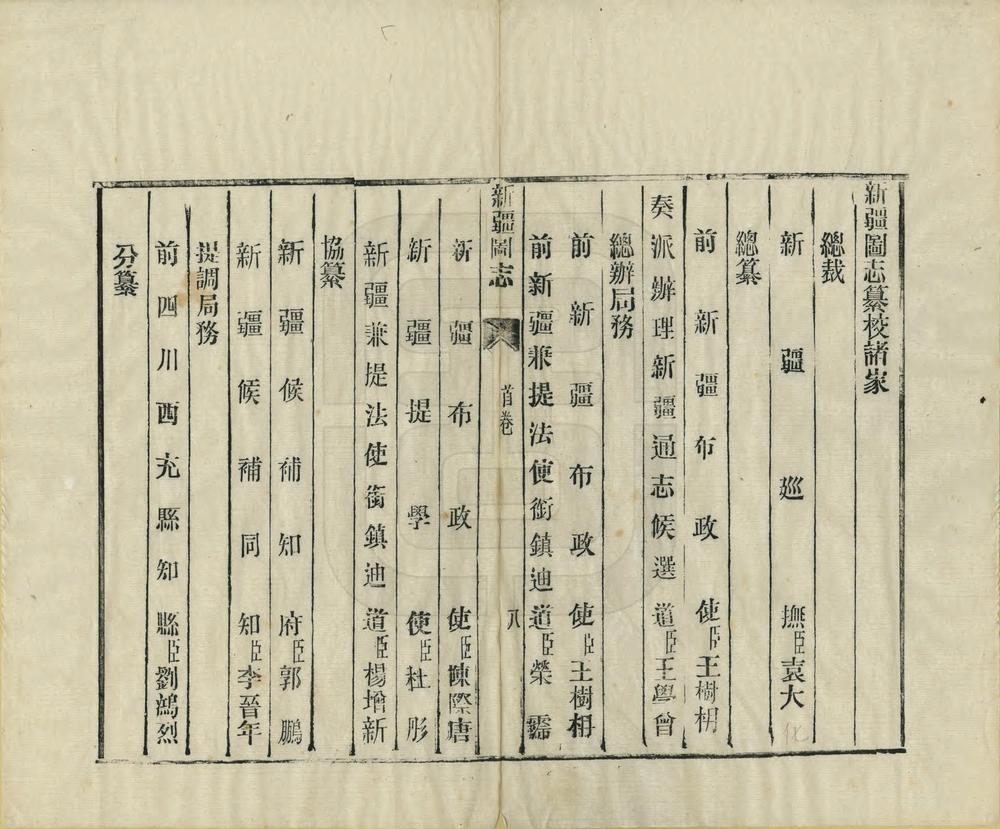 新疆圖志纂校諸家
總裁
新疆巡撫臣袁大
總纂
前新疆布政使臣王樹枏
奏派辦理新疆通志候選道臣王學曾
總辦局務
前新疆布政使臣王樹枏
前新疆兼提法使銜鎮迪道臣榮霈
新疆圖志
首卷
八
新疆布政使臣陳際唐
新疆提學使臣杜彤
新疆兼提法使銜鎮迪道臣楊增新
協纂
新疆候補知府臣郭鵬
新疆候補同知臣李晉年
提調局務
前四川西充縣知縣臣劉鴻烈
分纂